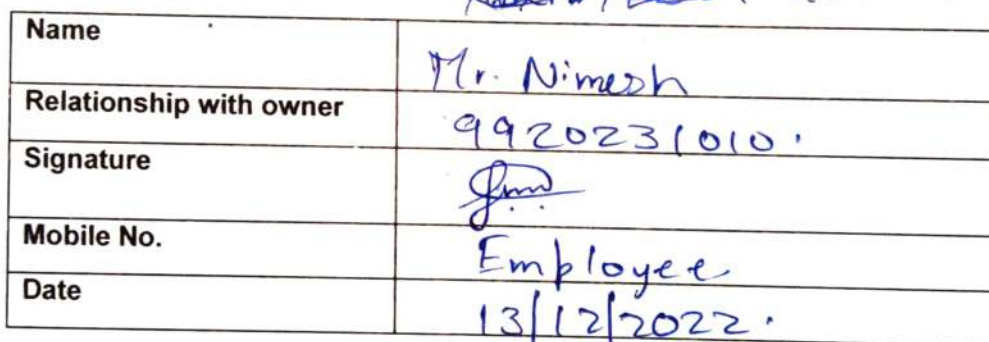 Name Mr. Nimesh
Relationship with owner 9920231010.
Signature
Mobile No. Employee
Date 13/12/2022.